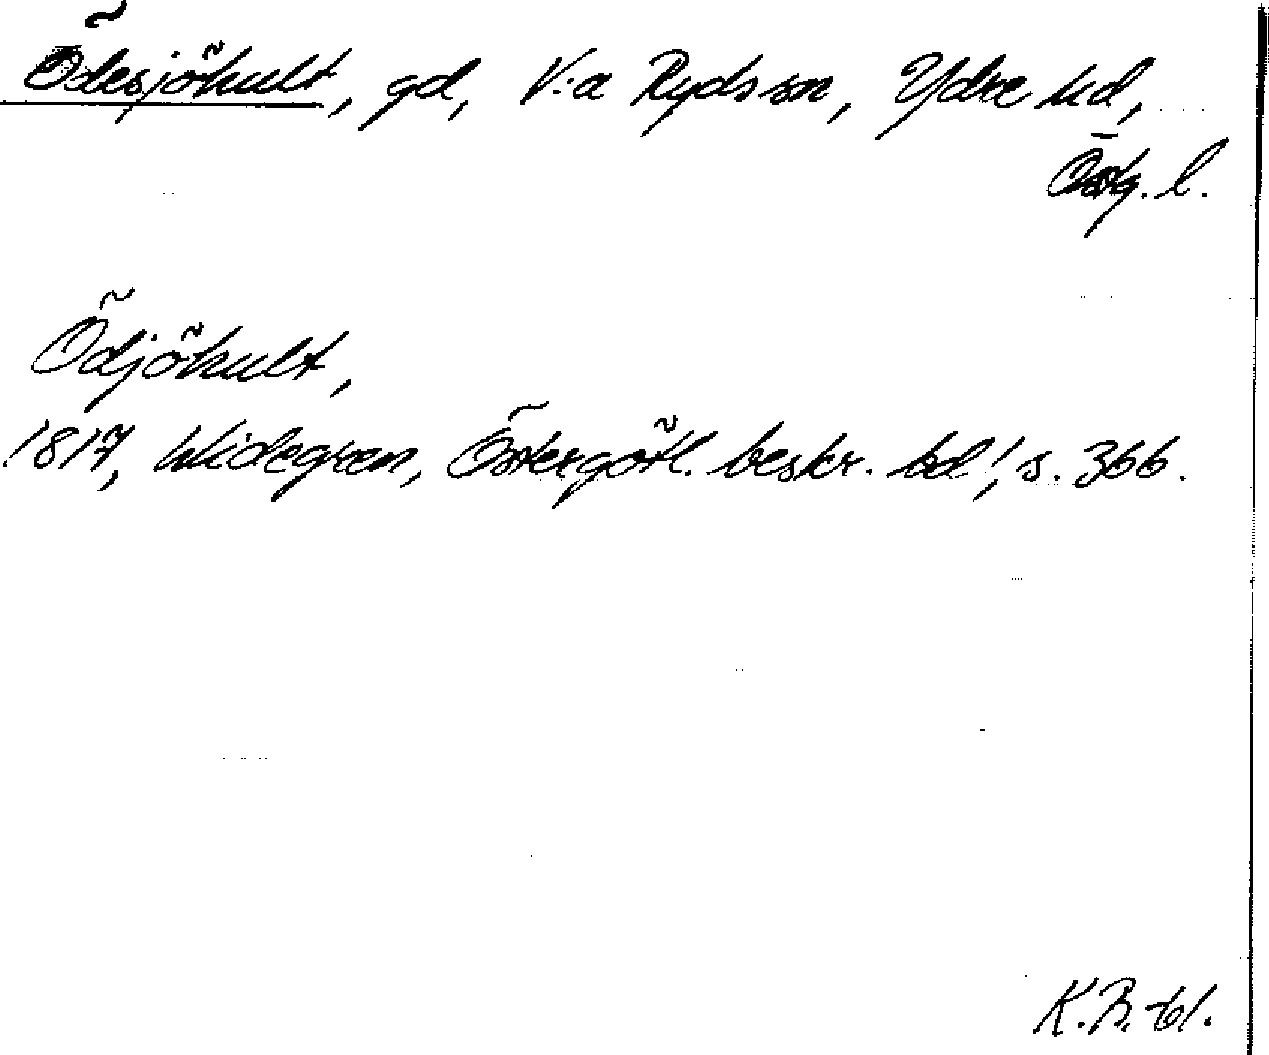 Ödesjöhult, gd, V:a Ryds sn, Ydre hd,
Östg. l.
Ödjöhult,
1817, Widegren, Östergötl. beskr. bd 1, s. 366.
K.B. -61.